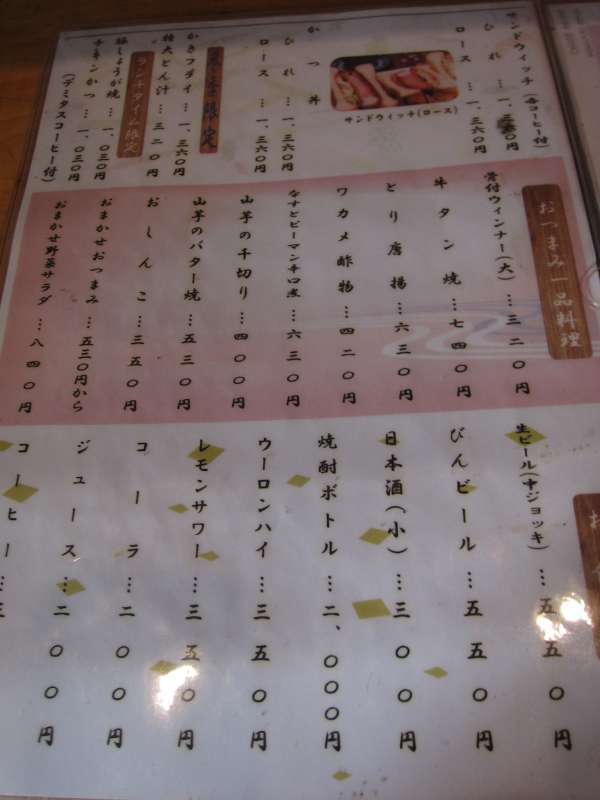 サンドウィッチ(各コーヒー付)
ひれ…一、三六〇円
ロース…一、三六〇円
サンドウィッチ(ロース)
かつ丼
ひれ…一、三六〇円
ロース…一、三六〇円
限定
かきフライ…一、三六〇円
特大とん汁…三二〇円
ランチタイム限定
豚しょうが焼…一、〇三〇円
チキンかつ…一、〇三〇円
(デミタスコーヒー付)
おつまみ一品料理
骨付ウィンナー(大)…三二〇円
牛タン焼…七四〇円
とり唐揚…六三〇円
ワカメ酢物…四二〇円
なすとピーマン辛口煮…六三〇円
山芋の千切り…四〇〇円
山芋のバター焼…五三〇円
おしんこ…三五〇円
おまかせおつまみ…五三〇円から
おまかせ野菜サラダ…八四〇円
生ビール(中ジョッキ)…五五〇円
びんビール…五五〇円
日本酒(小)…三〇〇円
焼酎ボトル…二、〇〇〇円
ウーロンハイ…三五〇円
レモンサワー…三五〇円
コーラ…二〇〇円
ジュース…二〇〇円
コーヒー…三〇円